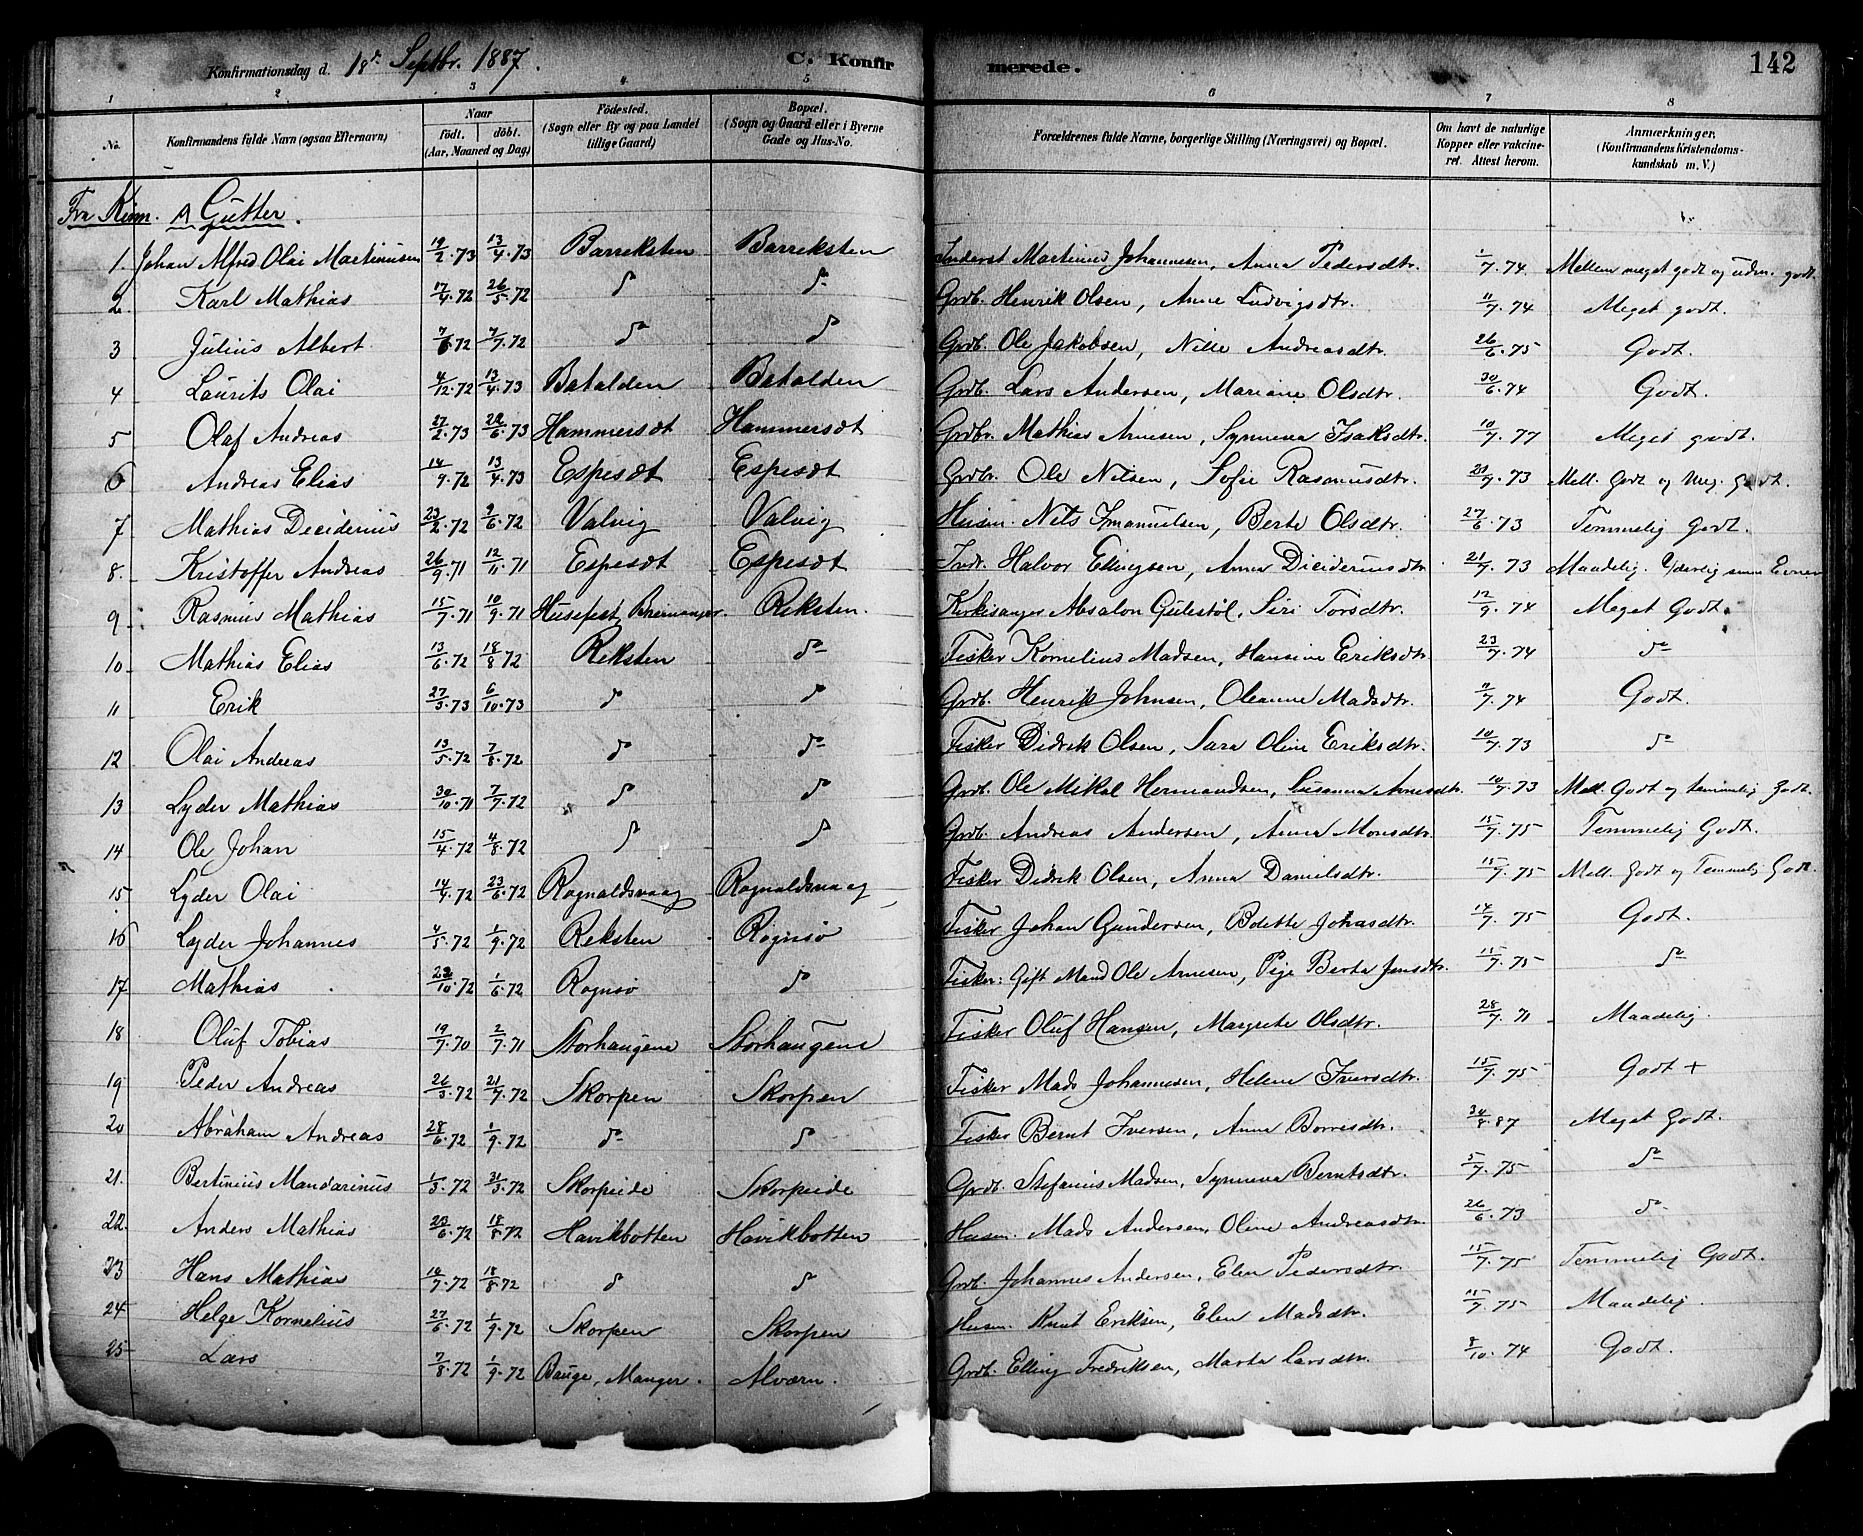 Konfirmationsdag d. 18de Septbr. 1887. C. Konfirmerede. 142
1 2 3 4 5 6 7 8
No. Konfirmandens fulde Navn (ogsaa Efternavn) Naar födt. döbt. (Aar, Maaned og Dag) Födested. (Sogn eller By og paa Landet tillige Gaard) Bopæl. (Sogn og Gaard eller i Byerne Gade og Hus-No. Forældrenes fulde Navne, borgerlige Stilling (Næringsvei) og Bopæl. Om havt de naturlige Kopper eller vakcineret. Attest herom. Anmærkninger. (Konfirmandens Kristendomskundskab m. V.)
Fra Kinn. A Gutter.
1. Johan Alfred Olai Martinusen 19/2.73 13/4.73 Barreksten Barreksten Inderst Martinus Johannesen, Anna Pedersdtr. 1/7.74 Mellem meget godt og uden. godt.
2. Karl Mathias 17/4.72 26/5.72 do do Grdb. Henrik Olsen, Anne Ludvigsdtr. 11/7.74 Meget godt.
3 Julius Albert 7/6.72 7/7.72 do do Grdb. Ole Jakobsen, Nille Andreasdtr. 26/6.75 Godt.
4 Laurits Olai 4/12.72 13/4.73 Batalden Batalden Grdb. Lars Andersen, Mariane Olsdtr. 30/6.74 Godt.
5 Olaf Andreas 27/2.73 22/6.73 Hammersæt Hammersæt Grdbr. Mathias Arnesen, Synneva Isaksdtr. 10/7.77 Meget godt.
6 Andreas Elias 14/9.72 13/4.73 Espesæt Espesæt Grdbr. Ole Nilsen, Sofie Rasmusdtr. 21/7.73 Mell. Godt og Meg. Godt.
7 Mathias Deciderius 23/2.72 9/6.72 Valvig Valvig Husm. Nils Imanuelsen, Berte Olsdtr. 27/6.73 Temmelig Godt.
8. Kristoffer Andreas 26/9.71 12/11.71 Espesæt Espesæt Indr. Halvor Ellingsen, Anna Dicideriusdtr. 21/7.73 Maadelig. Yderlig smaa Evner
9 Rasmus Mathias 15/7.71 10/9.71 Husefest Bremanger. Reksten. Kirkesanger Absalon Gulestöl, Siri Torsdtr. 12/9.74 Meget Godt.
10 Mathias Elias 13/6.72 18/8.72 Reksten do Fisker Kornelius Madsen, Hansine Eriksdtr. 23/7.74 do
11 Erik 27/3.73 6/10.73 do do Grdb. Henrik Johnsen, Oleanne Madsdtr. 11/7.74 Godt.
12 Olai Andreas 13/5.72 7/8.72 do do Fisker Didrik Olsen, Sara Oline Eriksdtr. 10/7.73 do
13 Lyder Mathias 30/10.71 7/7.72 do do Grdb. Ole Mikal Hermandsen, Susanna Arnesdtr. 10/7.73 Mell. Godt og temmelig Godt.
14 Ole Johan 15/4.72 4/8.72 do do Grdb. Andreas Andersen, Anna Monsdtr. 15/7.75 Temmelig Godt.
15 Lyder Olai 14/4.72 23/6.72 Rognaldsvaag Rognaldsvaag Fisker Didrik Olsen, Anna Danielsdtr. 15/7.75 Mell. Godt og Temmelig Godt.
16 Lyder Johannes 4/5.72 1/9.72 Reksten Rognsö Fisker Johan Gundersen, Bolette Johasdtr. 14/7.75 Godt.
17 Mathias 22/10.72 1/6.72 Rognsö do Fisker: Gift Mand Ole Arnesen, Pige Berta Jensdtr. 15/7.75 do
18 Oluf Tobias 19/7.70 2/7.71 Storhaugene Storhaugene Fisker Oluf Hansen, Margrete Olsdtr. 28/7.71 Maadelig.
19 Peder Andreas 26/3.72 21/7.72 Skorpen Skorpen Fisker Mads Johannesen, Helene Iversdtr. 15/7.75 Godt +
20 Abraham Andreas 28/6.72 1/9.72 do do Fisker Bernt Iversen, Anna Börresdtr. 30/8.87 Meget Godt.
21. Bertinius Mandarinus 1/3.72 31/3.72 Skorpeide Skorpeide Grdb. Stefanius Madsen, Synneva Berntsdtr. 5/7.75 do
22. Anders Mathias 23/6.72 18/8.72 Havikbotten Havikbotten Husm. Mads Andersen, Oline Andreasdtr. 26/6.73 do
23 Hans Mathias 10/7.72 18/8.72 do do Grdb. Johannes Andersen, Elen Pedersdtr. 15/7.75 Temmelig Godt.
24 Helge Kornelius 27/6.72 1/9.72 Skorpen Skorpen Husm. Knut Eriksen, Elen Madsdtr. 15/7.75 Maadelig.
25 Lars 7/8.72 1/9.72 Bauge, Manger. Alværn. Grdb. Elling Fredriksen, Marta Larsdtr. 8/10.74 Godt.